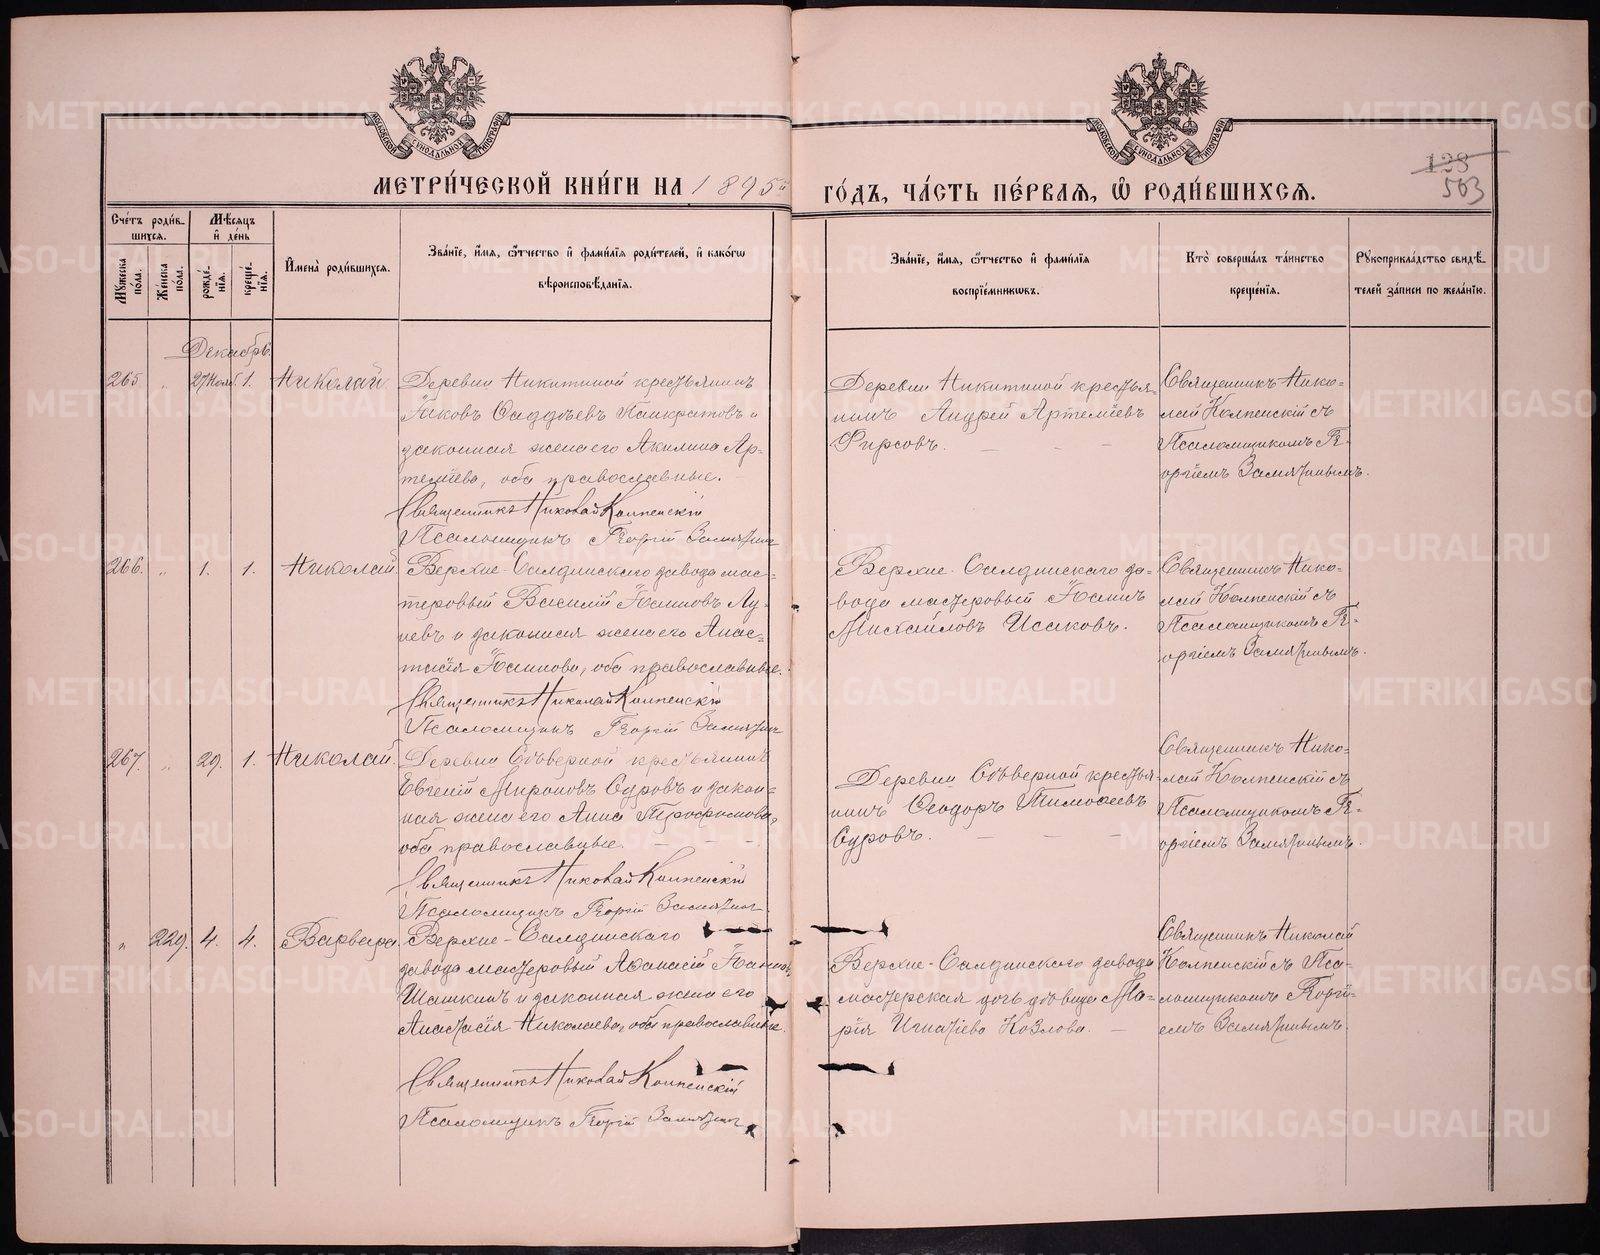 МЕТРИ́ЧЕСКОЙ КНИ́ГИ НА 1895й
ГО́ДЪ, ЧА́СТЬ ПЕ́РВАЯ, Ѽ РОДИ́ВШИХСЯ.
128
503
Сче́тъ роди́в-
шихся.
Мѣ́сяцъ
и҆ де́нь
Мꙋ́жеска
по́ла.
Же́нска
по́ла.
рожде́-
нїѧ.
креще́-
нїѧ.
И҆мена̀ роди́вшихсѧ.
Зва́нїе, и҆́мѧ, ѻ҆́тчество и҆ фами́лїѧ роди́телей, и҆ како́гѡ
вѣроисповѣ́данїѧ.
Зва́нїе, и҆́мѧ, ѻ҆́тчество и҆ фами́лїѧ
воспрїе́мникѡвъ.
Кто̀ соверша́лъ та́инство
креще́нїѧ.
Рꙋкоприкла́дство свидѣ́-
телей за́писи по жела́нїю.
Декабрь.
265 „ 27 Нояб. 1. Николай.
Деревни Никитиной крестьянинъ
Іаковъ Ѳаддѣевъ Панкратовъ и
законная жена его Акилина Ар-
теміева, оба православные.
Священникъ Николай Колпенскій
Псаломщикъ Георгій Замятнин
Деревни Никитиной крестья-
нинъ Андрей Артеміевъ
Фирсовъ.
Священникъ Нико-
лай Колпенскій съ
Псаломщикомъ Ге-
оргіемъ Замятнинымъ.
266. „ 1. 1. Николай.
Верхне-Салдинскаго завода мас-
теровый Василій Іоанновъ Лу-
невъ и законная жена его Анас-
тасія Іоаннова, оба православные.
Священникъ Николай Колпенскій
Псаломщикъ Георгій Замятнин
Верхне-Салдинскаго за-
вода мастеровый Іоаннъ
Михайловъ Исаковъ.
Священникъ Нико-
лай Колпенскій съ
Псаломщикомъ Ге-
оргіемъ Замятнинымъ.
267. „ 29. 1. Николай.
Деревни Сѣверной крестьянинъ
Евгеній Мироновъ Суровъ и закон-
ная жена его Анна Трофимова,
оба православные.
Священникъ Николай Колпенскій
Псаломщикъ Георгій Замятнин
Деревни Сѣверной крестья-
нинъ Ѳеодоръ Тимоѳеевъ
Суровъ.
Священникъ Нико-
лай Колпенскій съ
Псаломщикомъ Ге-
оргіемъ Замятнинымъ.
„ 229. 4. 4. Варвара.
Верхне-Салдинскаго
завода мастеровый Аѳанасій Іоаннов
Шашкинъ и законная жена его
Анастасія Николаева, оба православные.
Священникъ Николай Колпенскій
Псаломщикъ Георгій Замятнин
Верхне-Салдинскаго завода
мастерская дочь дѣвица Ма-
рія Игнатіева Козлова.
Священникъ Николай
Колпенскій съ Пса-
ломщикомъ Георгі-
емъ Замятнинымъ.
METRIKI.GASO-URAL.RU